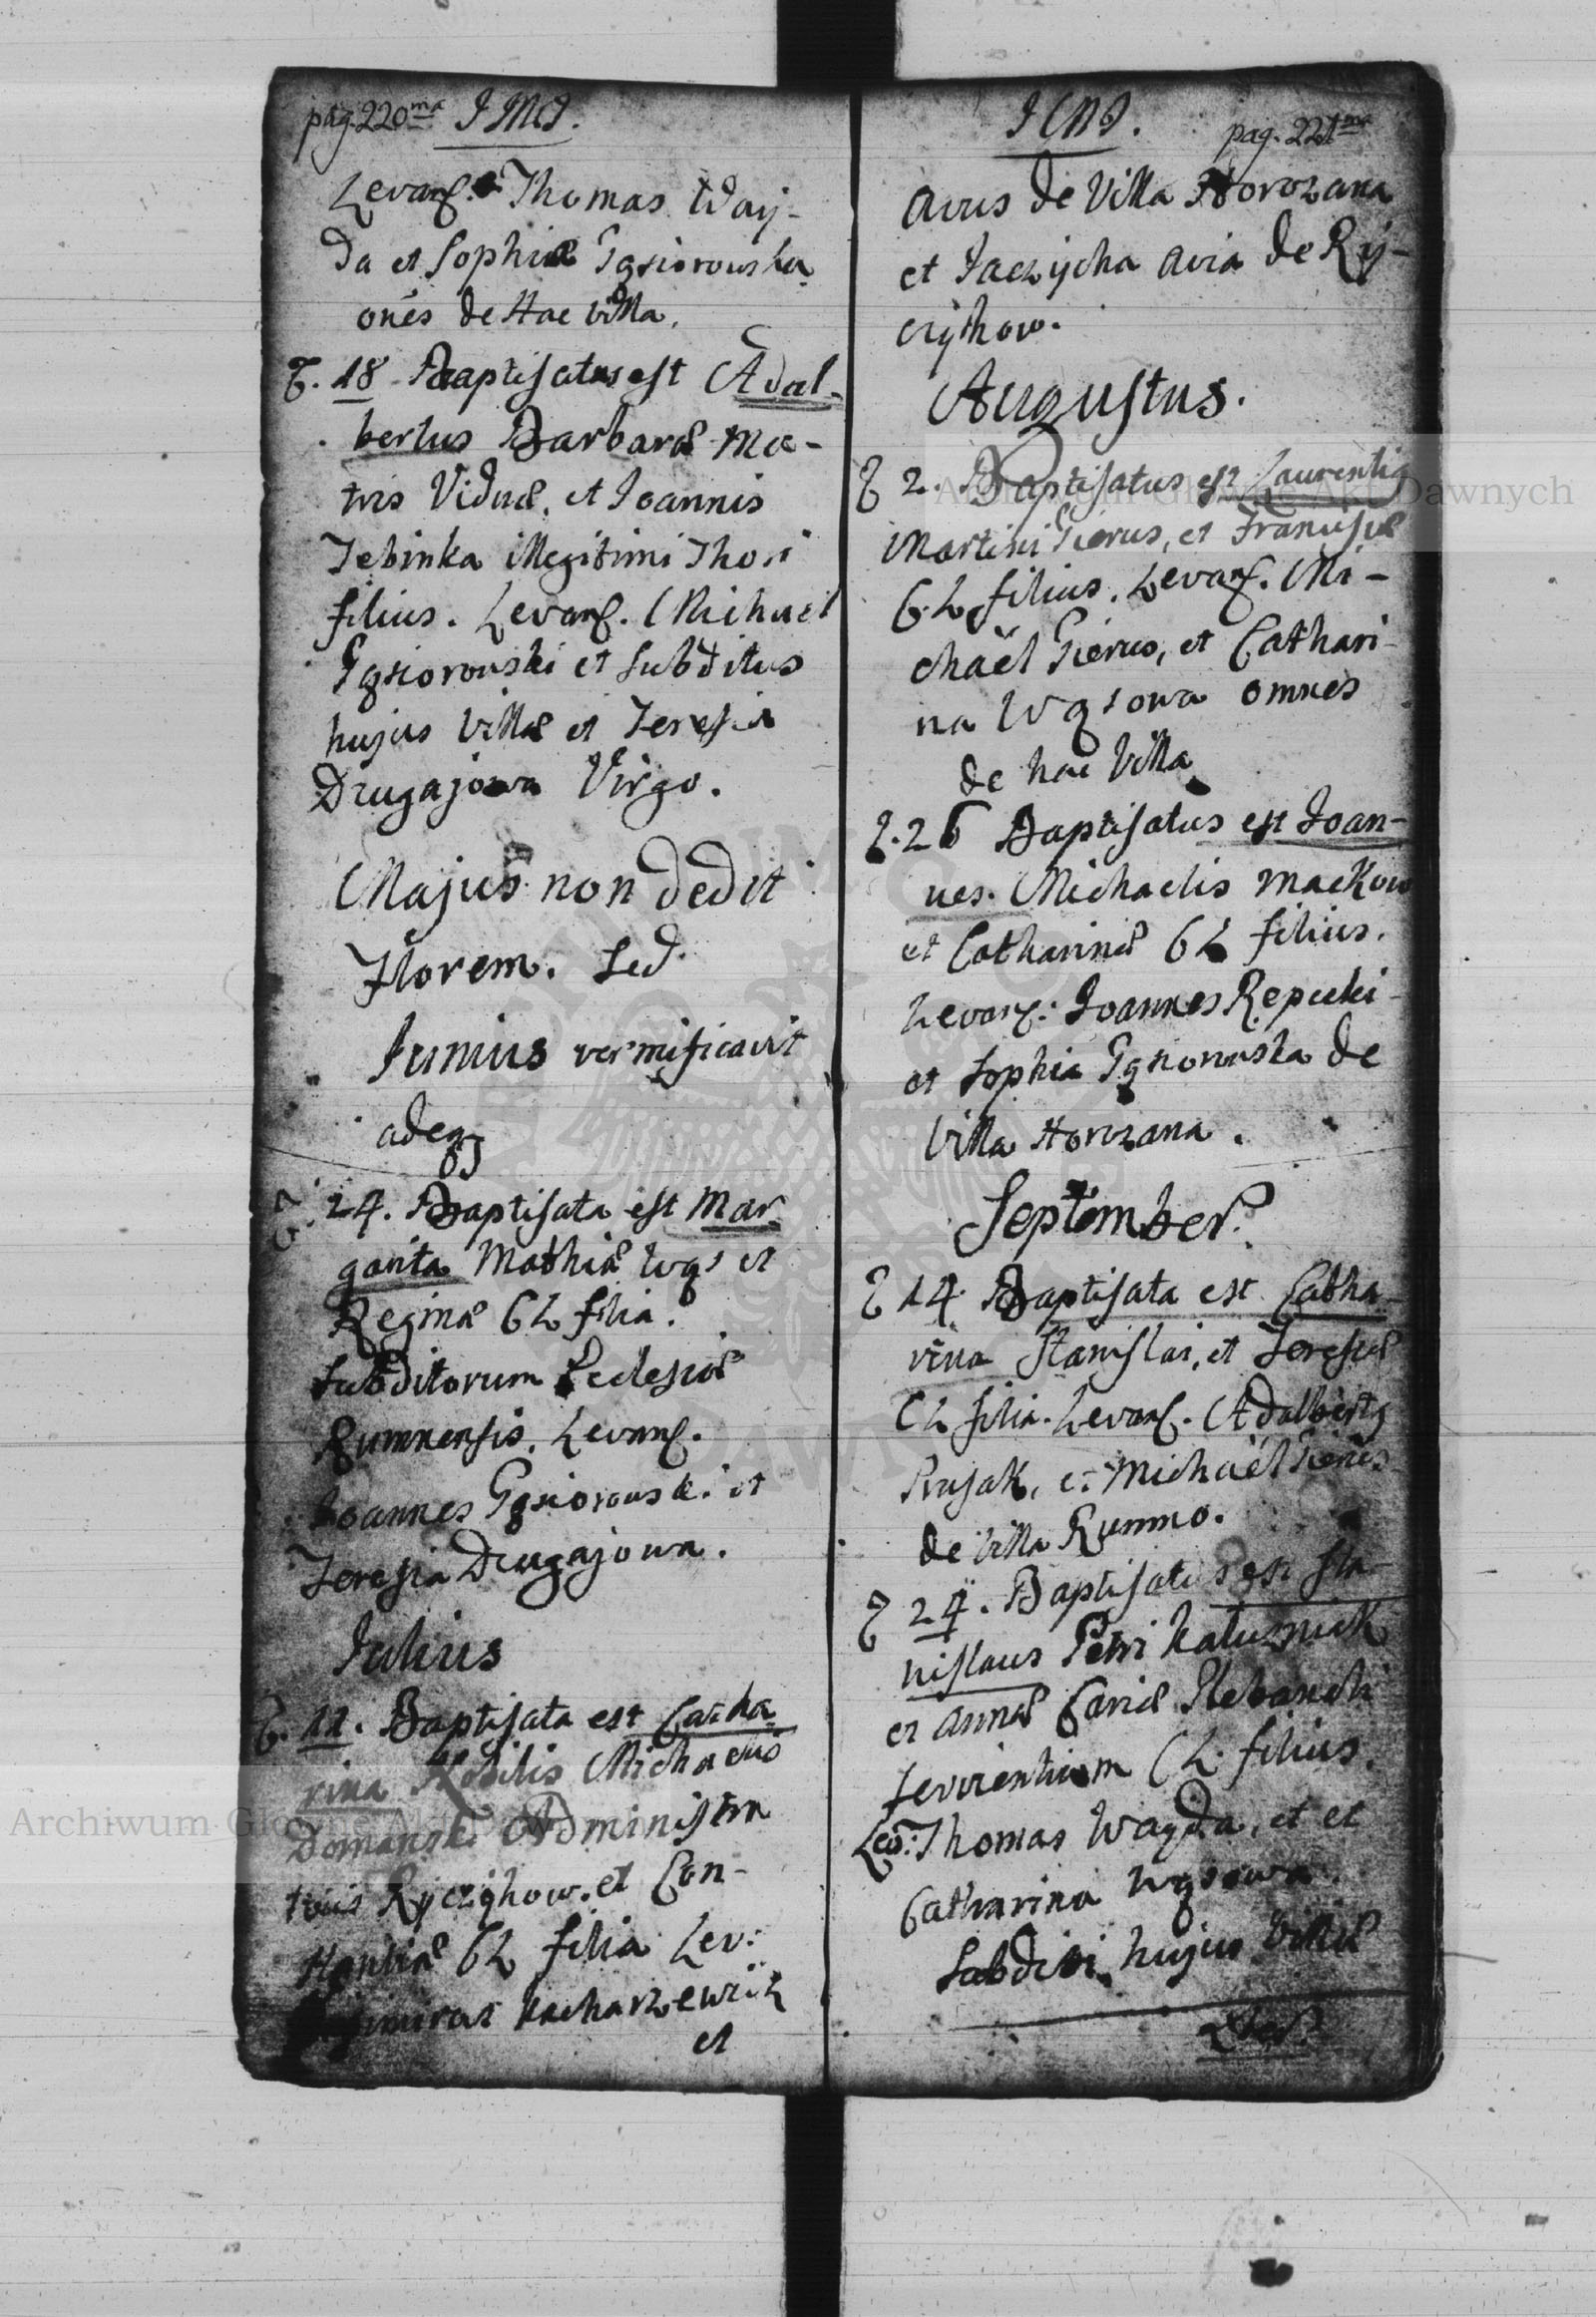 pag. 220ma I M I.
Levarg. Thomas Way-
da et Sophia Gąsiorowska
oñes de Hac Villa.
18 Baptisatus est Adal-
bertus Barbaræ Ma-
tris Viduæ, et Joannis
Tebinka illegitimi Thori
filius. Levarg. Michael
Gąsiorowski et Subditus
hujus Villæ et Teresia
Drugajowa Virgo.
Majus non dedit
Florem. Sed
Junius vermificavit
adeq
24. Baptisata est Mar
garita Mathiæ Wąs et
Reginæ CL filia.
Subditorum Ecclesiæ
Rumnensis. Levarg.
Joannes Gąsiorowski et
Teresia Drugajowa.
Julius
11. Baptisata est Catha
rina Nobilis Michaelis
Domanski Administra
toris Ryczyhow. et Con-
stantiæ CL filia Lev:
Kacharzewicz
et
pag. 221ma
avus de Villa Horozana
et Jaczycha avia de Ry-
czyhow.
Augustus.
2. Baptisatus est Laurentig
Martini Gierus, et Francisæ
CL filius. Levarg. Mi-
chaël Gierus, et Cathari-
na Wąsowa omnes
de hac Villa
26 Baptisatus est Joan-
nes. Michaelis Mackow
et Catharinæ CL filius.
Levarg: Joannes Repecki
et Sophia Gąsiorowska de
Villa Horozana.
September
14 Baptisata est Catha-
rina Stanislai, et Teresiæ
CL filia. Levarg. Adalbertg
Rusak, et Michaël Gierus
de Villa Rumno.
24. Baptisatus est Sta-
nislaus Petri Kaluzniak
et Annæ Curiæ Plebanali
servientium CL filius.
Lev: Thomas Wayda, et et
Catharina Wąsowa.
Subditi hujus Villæ